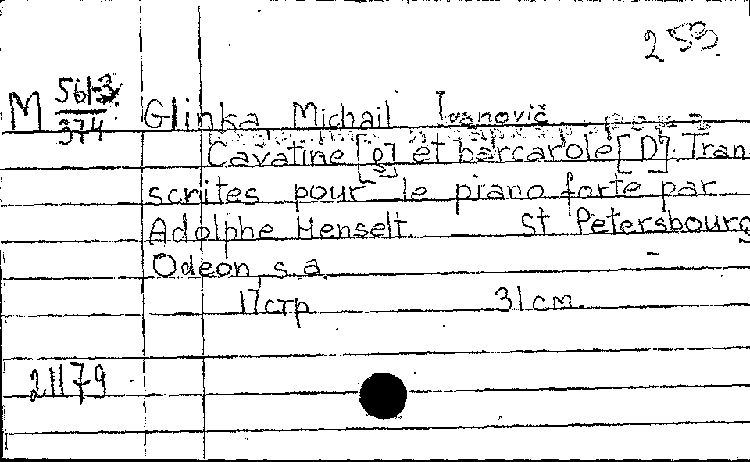 253
M 561-3
374
Glinka, Michail Ivanovič
Cavatine [g] et barcarole [D]. Tran
scrites pour le piano forte par
Adolphe Henselt. St Petersbourg
Odeon, s.a.
17 стр 31 см.
21179